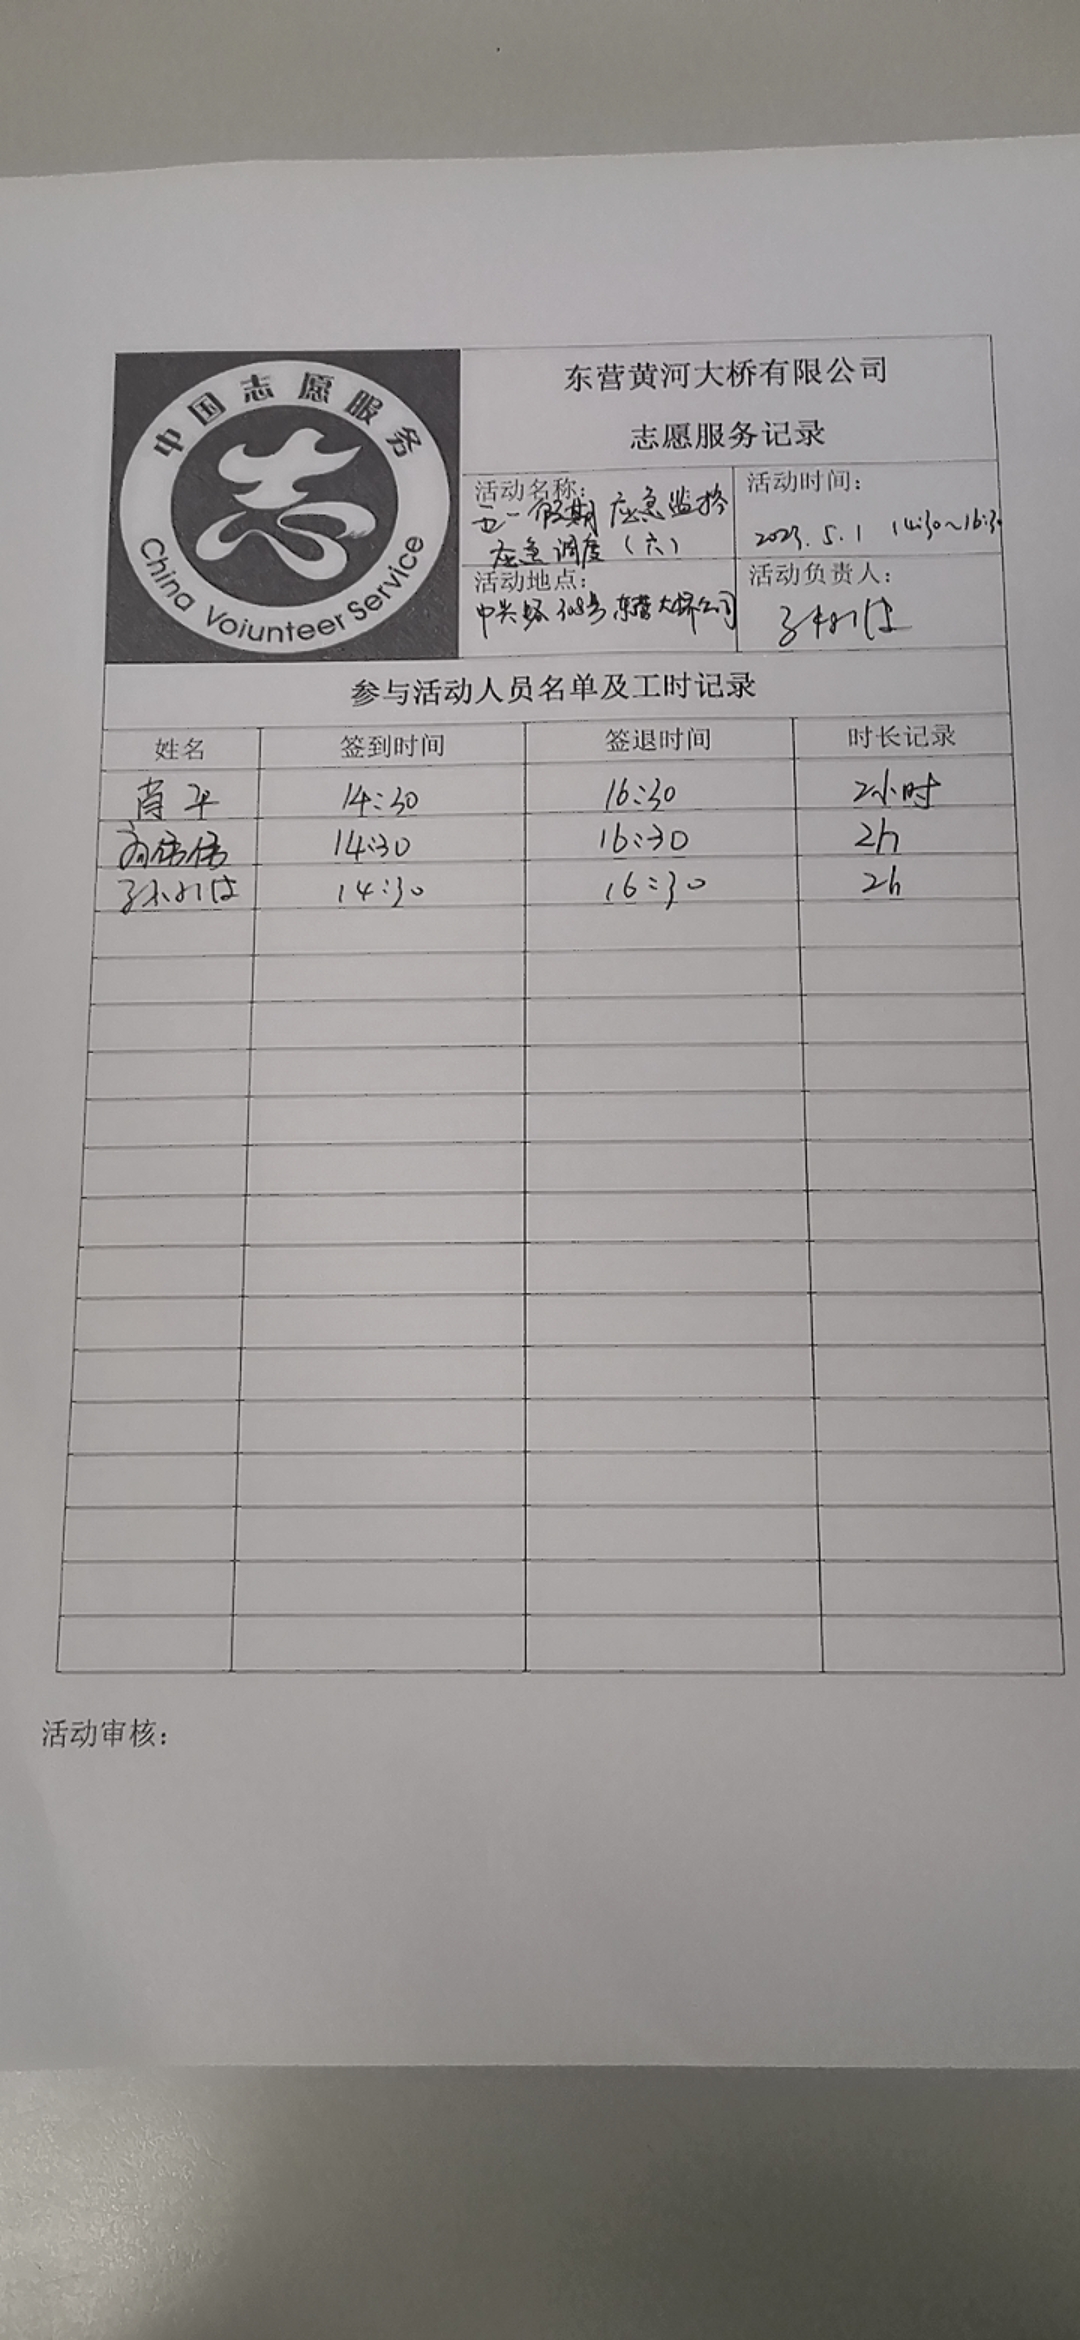 中国志愿服务
China Voiunteer Service
东营黄河大桥有限公司
志愿服务记录
活动名称：
五一假期应急监控
应急调度（六）
活动时间：
2023.5.1 14:30~16:30
活动地点：
中兴路308号东营大桥公司
活动负责人：
参与活动人员名单及工时记录
姓名 签到时间 签退时间 时长记录
肖平 14:30 16:30 2小时
伟伟 14:30 16:30 2h
14:30 16:30 2h
活动审核：